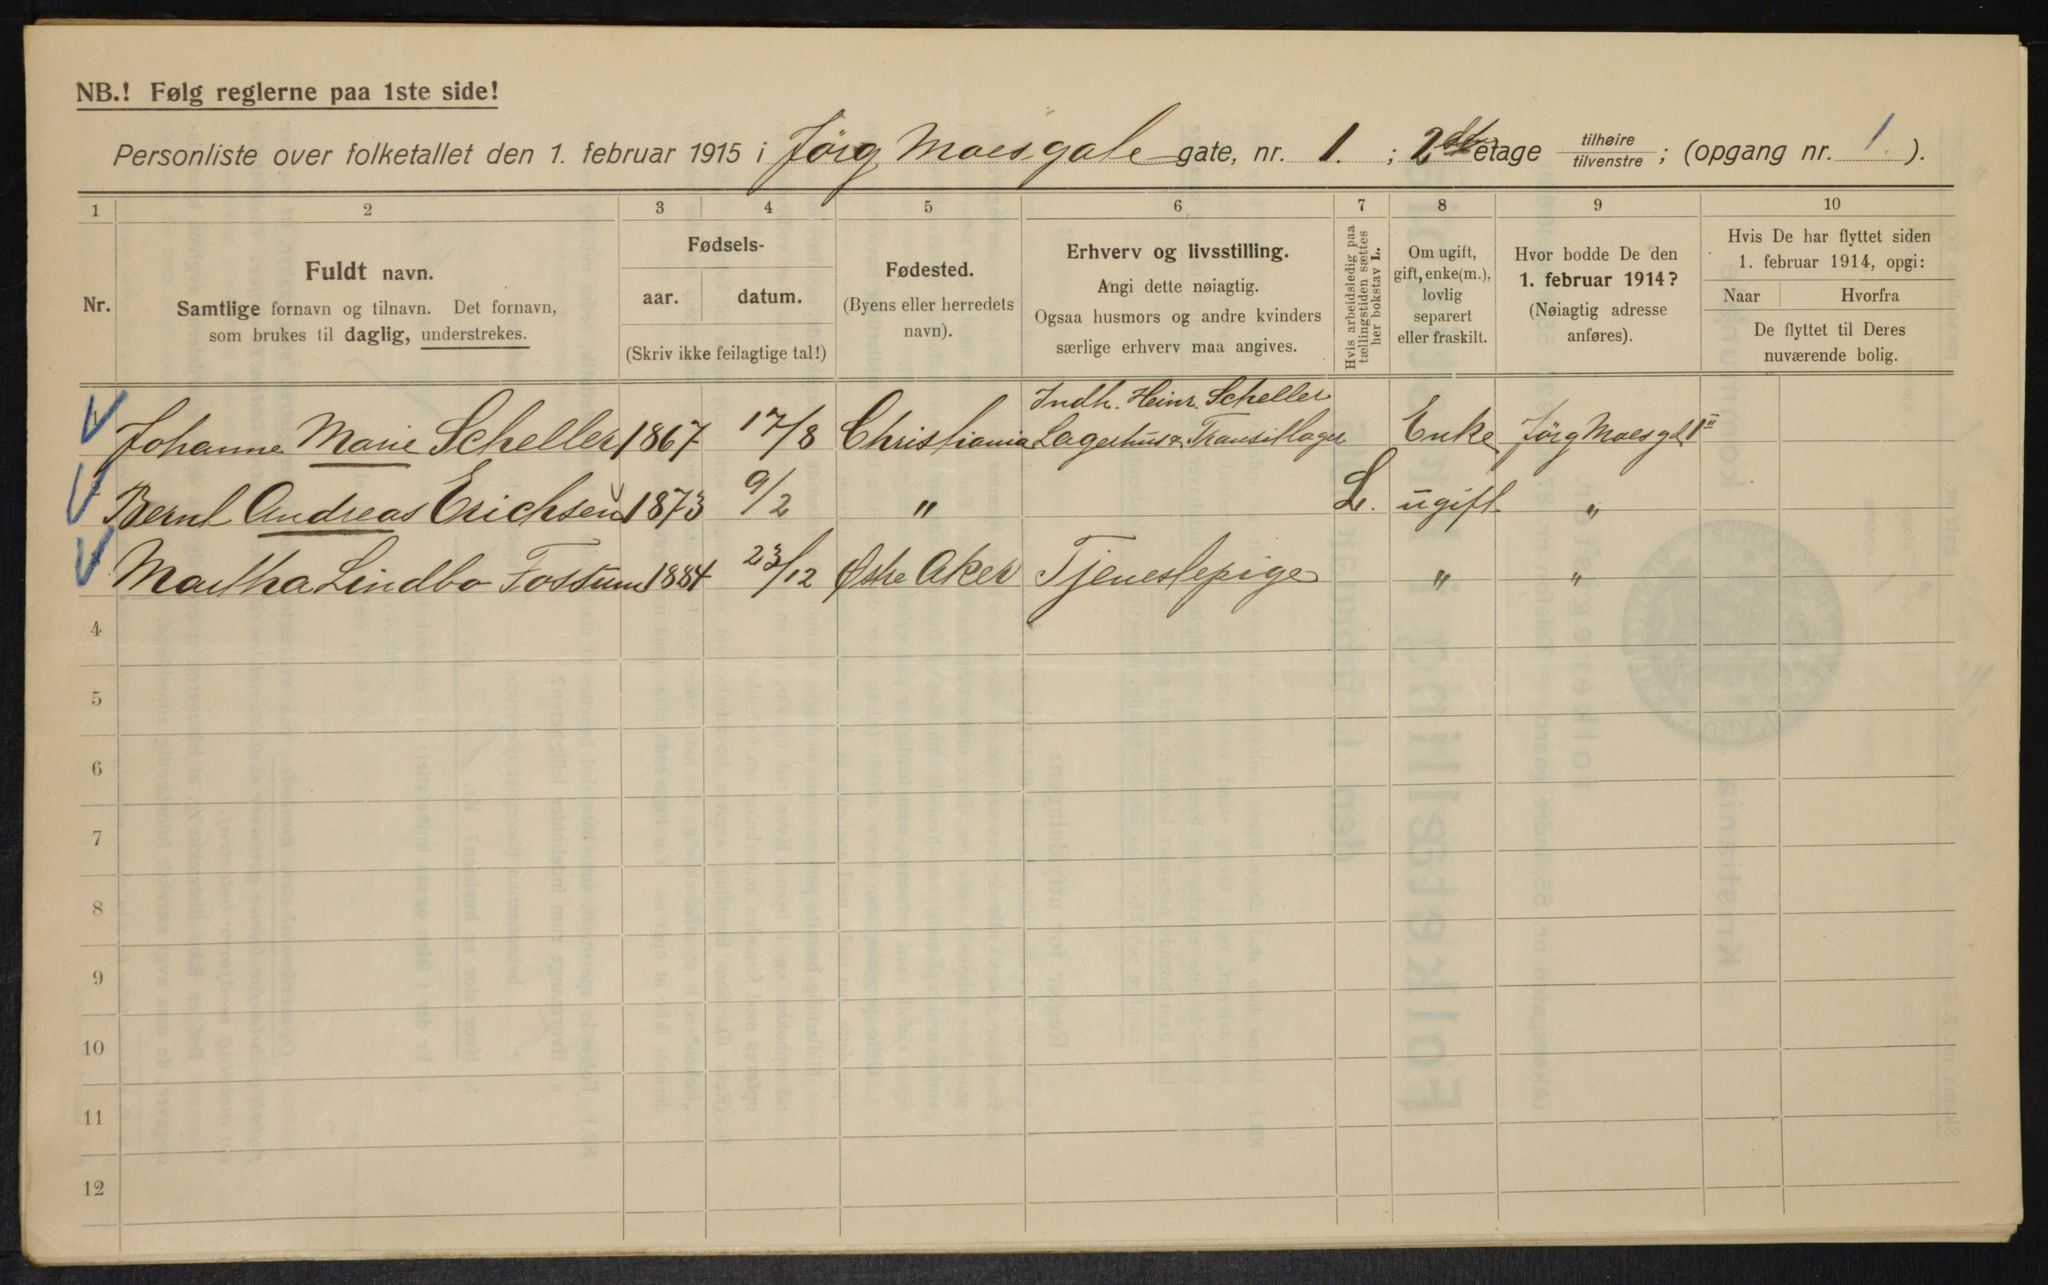 NB.! Følg reglerne paa 1ste side!
Personliste over folketallet den 1. februar 1915 i Jørg Moesgate gate, nr. 1. ; 2 etage tilhøire/tilvenstre ; (opgang nr. 1. ).
1 2 3 4 5 6 7 8 9 10
Nr.
Fuldt navn.
Samtlige fornavn og tilnavn. Det fornavn,
som brukes til daglig, understrekes.
Fødsels-
aar. datum.
(Skriv ikke feilagtige tal!)
Fødested.
(Byens eller herredets
navn).
Erhverv og livsstilling.
Angi dette nøiagtig.
Ogsaa husmors og andre kvinders
særlige erhverv maa angives.
Hvis arbeidsledig paa
tællingstiden sættes
her bokstav L.
Om ugift,
gift, enke(m.),
lovlig
separert
eller fraskilt.
Hvor bodde De den
1. februar 1914?
(Nøiagtig adresse
anføres).
Hvis De har flyttet siden
1. februar 1914, opgi:
Naar Hvorfra
De flyttet til Deres
nuværende bolig.
Indh. Heinr. Scheller
Johanne Marie Scheller 1867 17/8 Christiania Lagerhus & Transitlager Enke Jørg Moesgt 1 II
Bernt Andreas Erichsen 1873 9/2 " L. ugift "
Martha Lindbo Fossum 1884 23/12 Østre Aker Tjenestepige " "
4
5
6
7
8
9
10
11
12